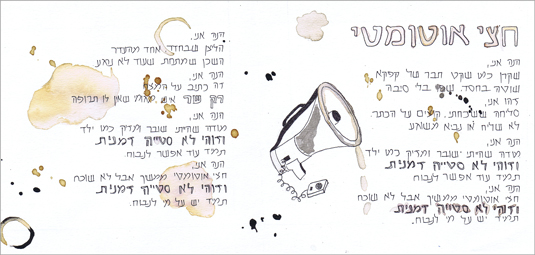 חצי אוטומטי
הנה אני,
שקרן כמו שקט חבר של קפקא
שוטה בחסד, שפוי בלי סיבה
זיהו אני,
סליחה ששכחתי, קוצים על הכתר.
לא שליח או נביא משוגע
הנה אני,
מודה שהייתי שובר ומזיק כמו ילד
וזוהי לא סטייה זמנית.
תמיד עוד אפשר לנבוח
הנה אני,
חצי אוטומטי ממשיך אבל לא שוכח
וזוהי לא סטייה זמנית
תמיד יש על מי לנבוח.
הנה אני,
הליצן שבחדר, אחד מהעדר
השכן שמתחת, שעוד לא נגע
הנה אני,
זה כתוב על המצח
רק שר
הנה אני,
מודה שהייתי שובר ומזיק כמו ילד
וזוהי לא סטייה זמנית.
תמיד עוד אפשר לנבוח
הנה אני,
חצי אוטומטי ממשיך אבל לא שוכח
וזוהי לא סטייה זמנית
תמיד יש על מי לנבוח.